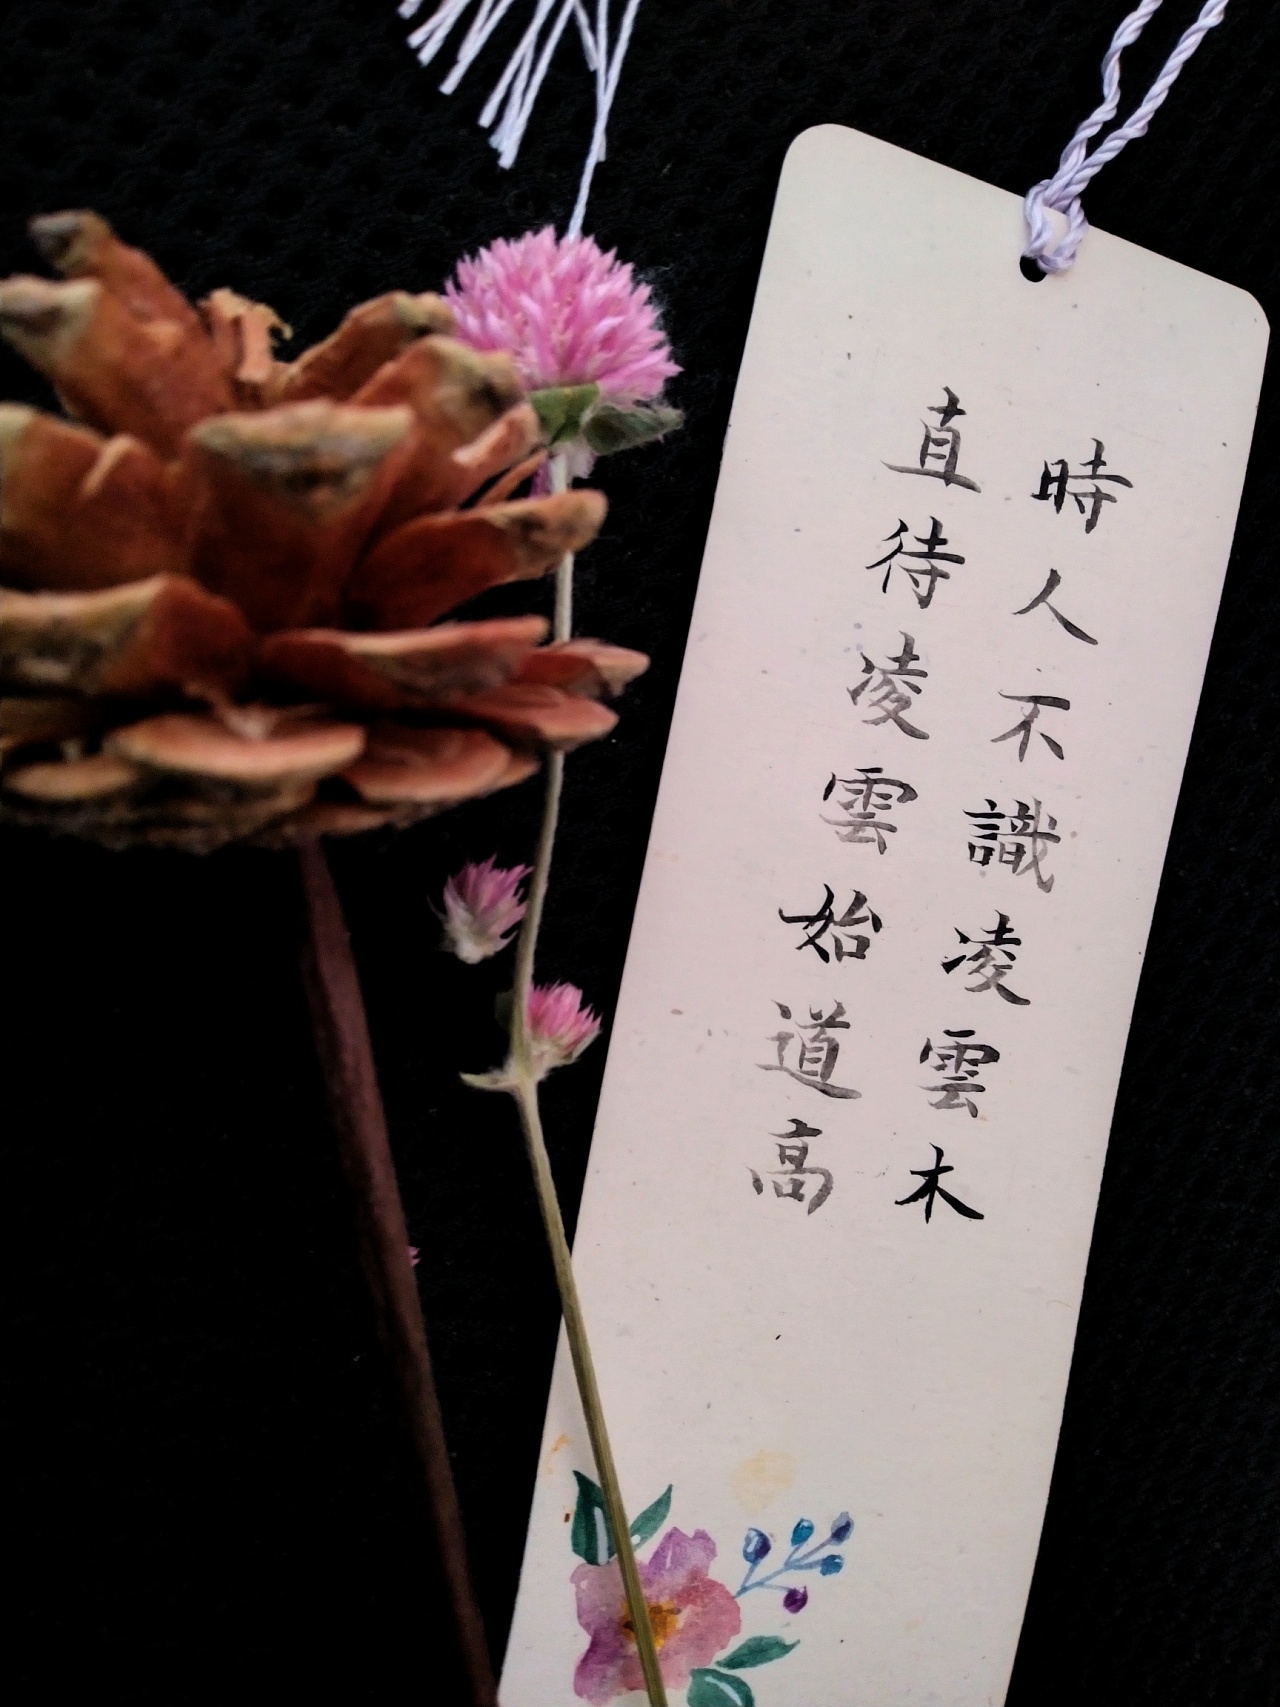 時人不識凌雲木
直待凌雲始道高